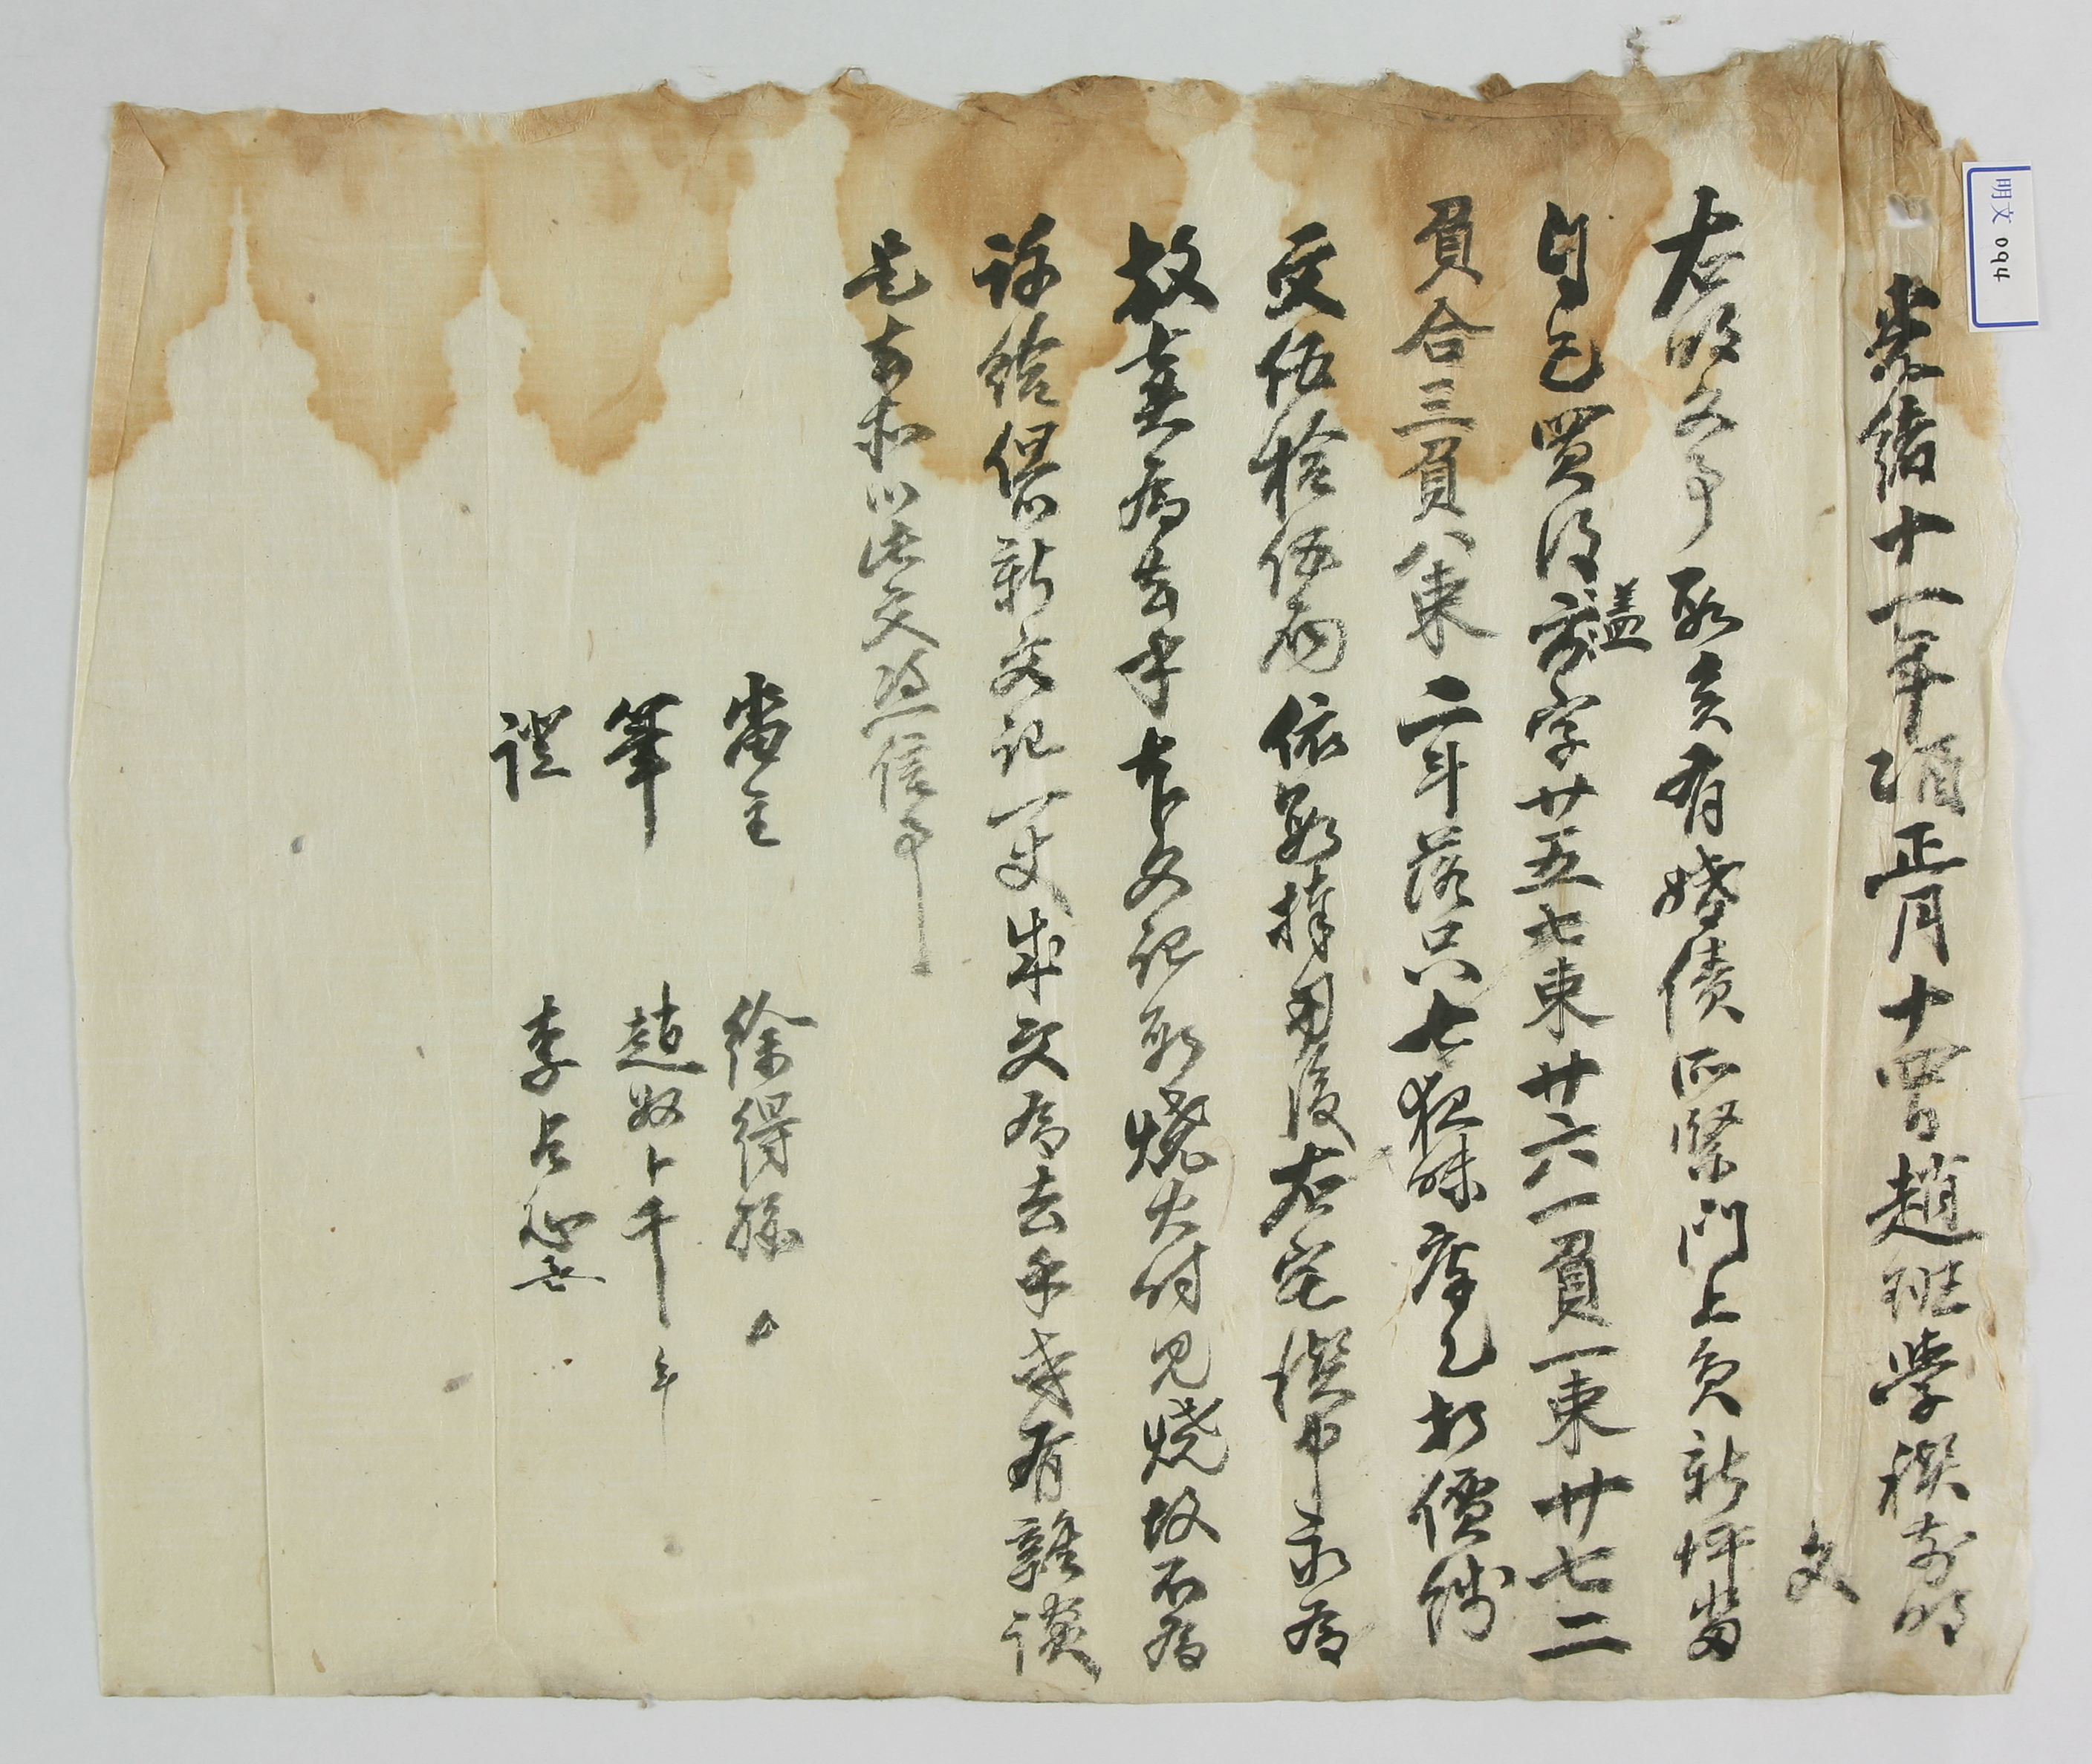 明文 094
光緖十一年乙酉正月十四日趙班學禊前明
文
右明文事段矣有婚債所緊門上員新坪畓
自己買得盖字廿五七束廿六一負一束廿七二
負合三負八束二斗落只七夜味庫乙折價錢
文伍拾伍兩依數捧用後右宅禊中永爲
放賣爲去乎本文記段燒火時見燒故不爲
許給俱新文記一丈成文爲去乎幸有雜談
是去等以此文憑信事
畓主 徐得孫
筆 趙奴卜千
證 李占心